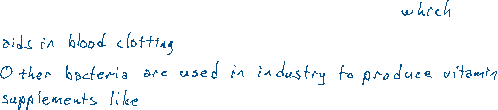 which
aids in blood clotting
Other bacteria are used in industry to produce vitamin
supplements like